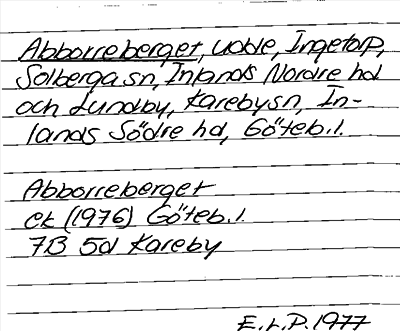 Abborreberget, udde, Ingetorp,
Solberga sn, Inlands Nordre hd
och Lundby, Kareby sn, In-
lands Södre hd, Göteb. l.
Abborreberget
ek (1976) Göteb. l.
7B 5d Kareby
E. L. P. 1977